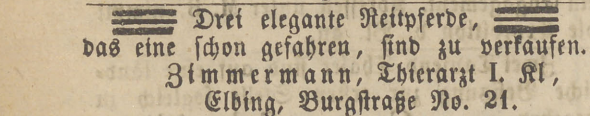 Drei elegante Reitpferde,
das eine schon gefahren, sind zu verkaufen.
Zimmermann, Thierarzt I. Kl,
Elbing, Burgstraße No. 21.